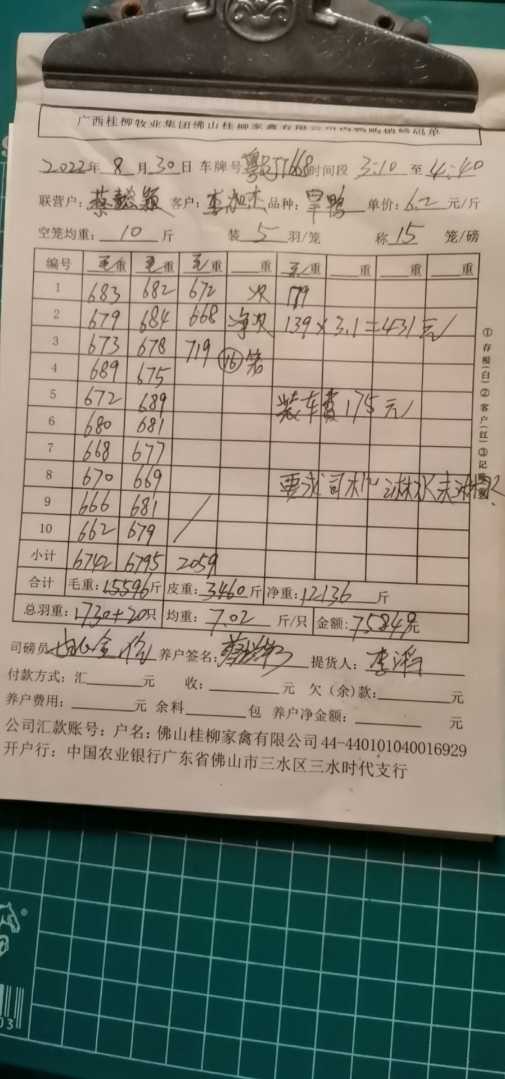 广西桂柳牧业集团佛山桂柳家禽有限公司肉鸭购销磅码单
2022年 8 月 30 日 车牌号 粤 1668 时间段 3:10 至 4:40
联营户: 蔡懿颖 客户: 李加杰 品种: 旱鸭 单价: 6.2 元/斤
空笼均重: 10 斤 装 5 羽/笼 称 15 笼/磅
编号 毛重 毛重 毛重 重 重 重 重 重
1 683 682 672 次 179
2 679 684 668 净次 139×3.1=431元
3 673 678 719 ⑯笼
4 689 675
5 672 689 装车费175元
6 680 681
7 668 677
8 670 669 要求司机淋水未淋水
9 666 681
10 662 679
小计 6742 6795 2059
合计 毛重:15596斤 皮重:3460斤 净重:12136 斤
总羽重:1730+20只 均重: 7.02 斤/只 金额:75849元
司磅员 养户签名: 提货人: 李
付款方式:汇 元 收: 元 欠(余)款: 元
养户费用: 元 余料 包 养户净金额: 元
公司汇款账号:户名:佛山桂柳家禽有限公司 44-440101040016929
开户行:中国农业银行广东省佛山市三水区三水时代支行
①存根(白)②客户(红)③记